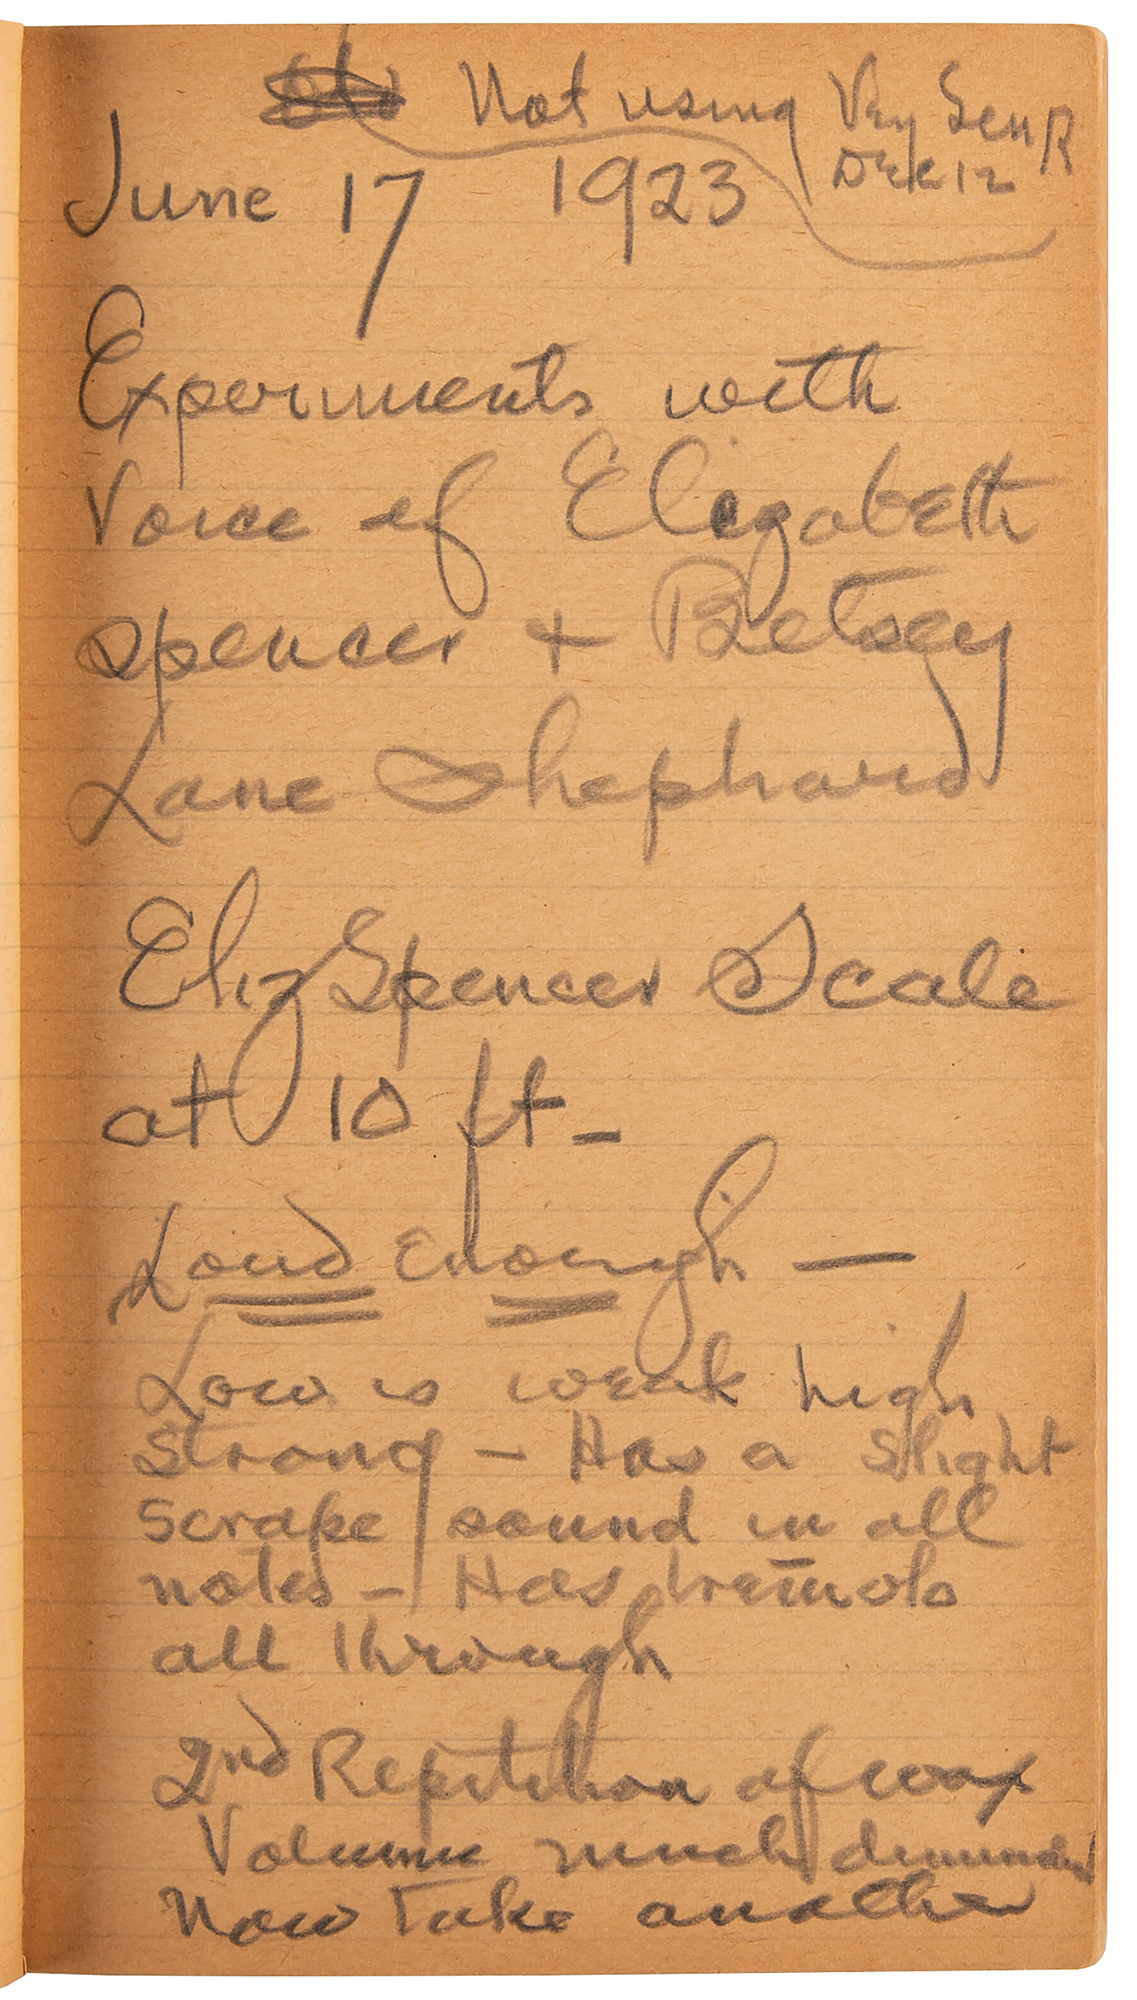 Not using Very Sen R
Disk 12
June 17 1923
Experiments with
Voice of Elizabeth
Spencer + Betsey
Lane Shephard
Eliz Spencer Scale
at 10 ft -
Loud Enough —
Low is weak high
Strong - Has a slight
scrape sound in all
notes - Has tremolo
all through
2nd Repitition of wax
Volume much
Now Take another